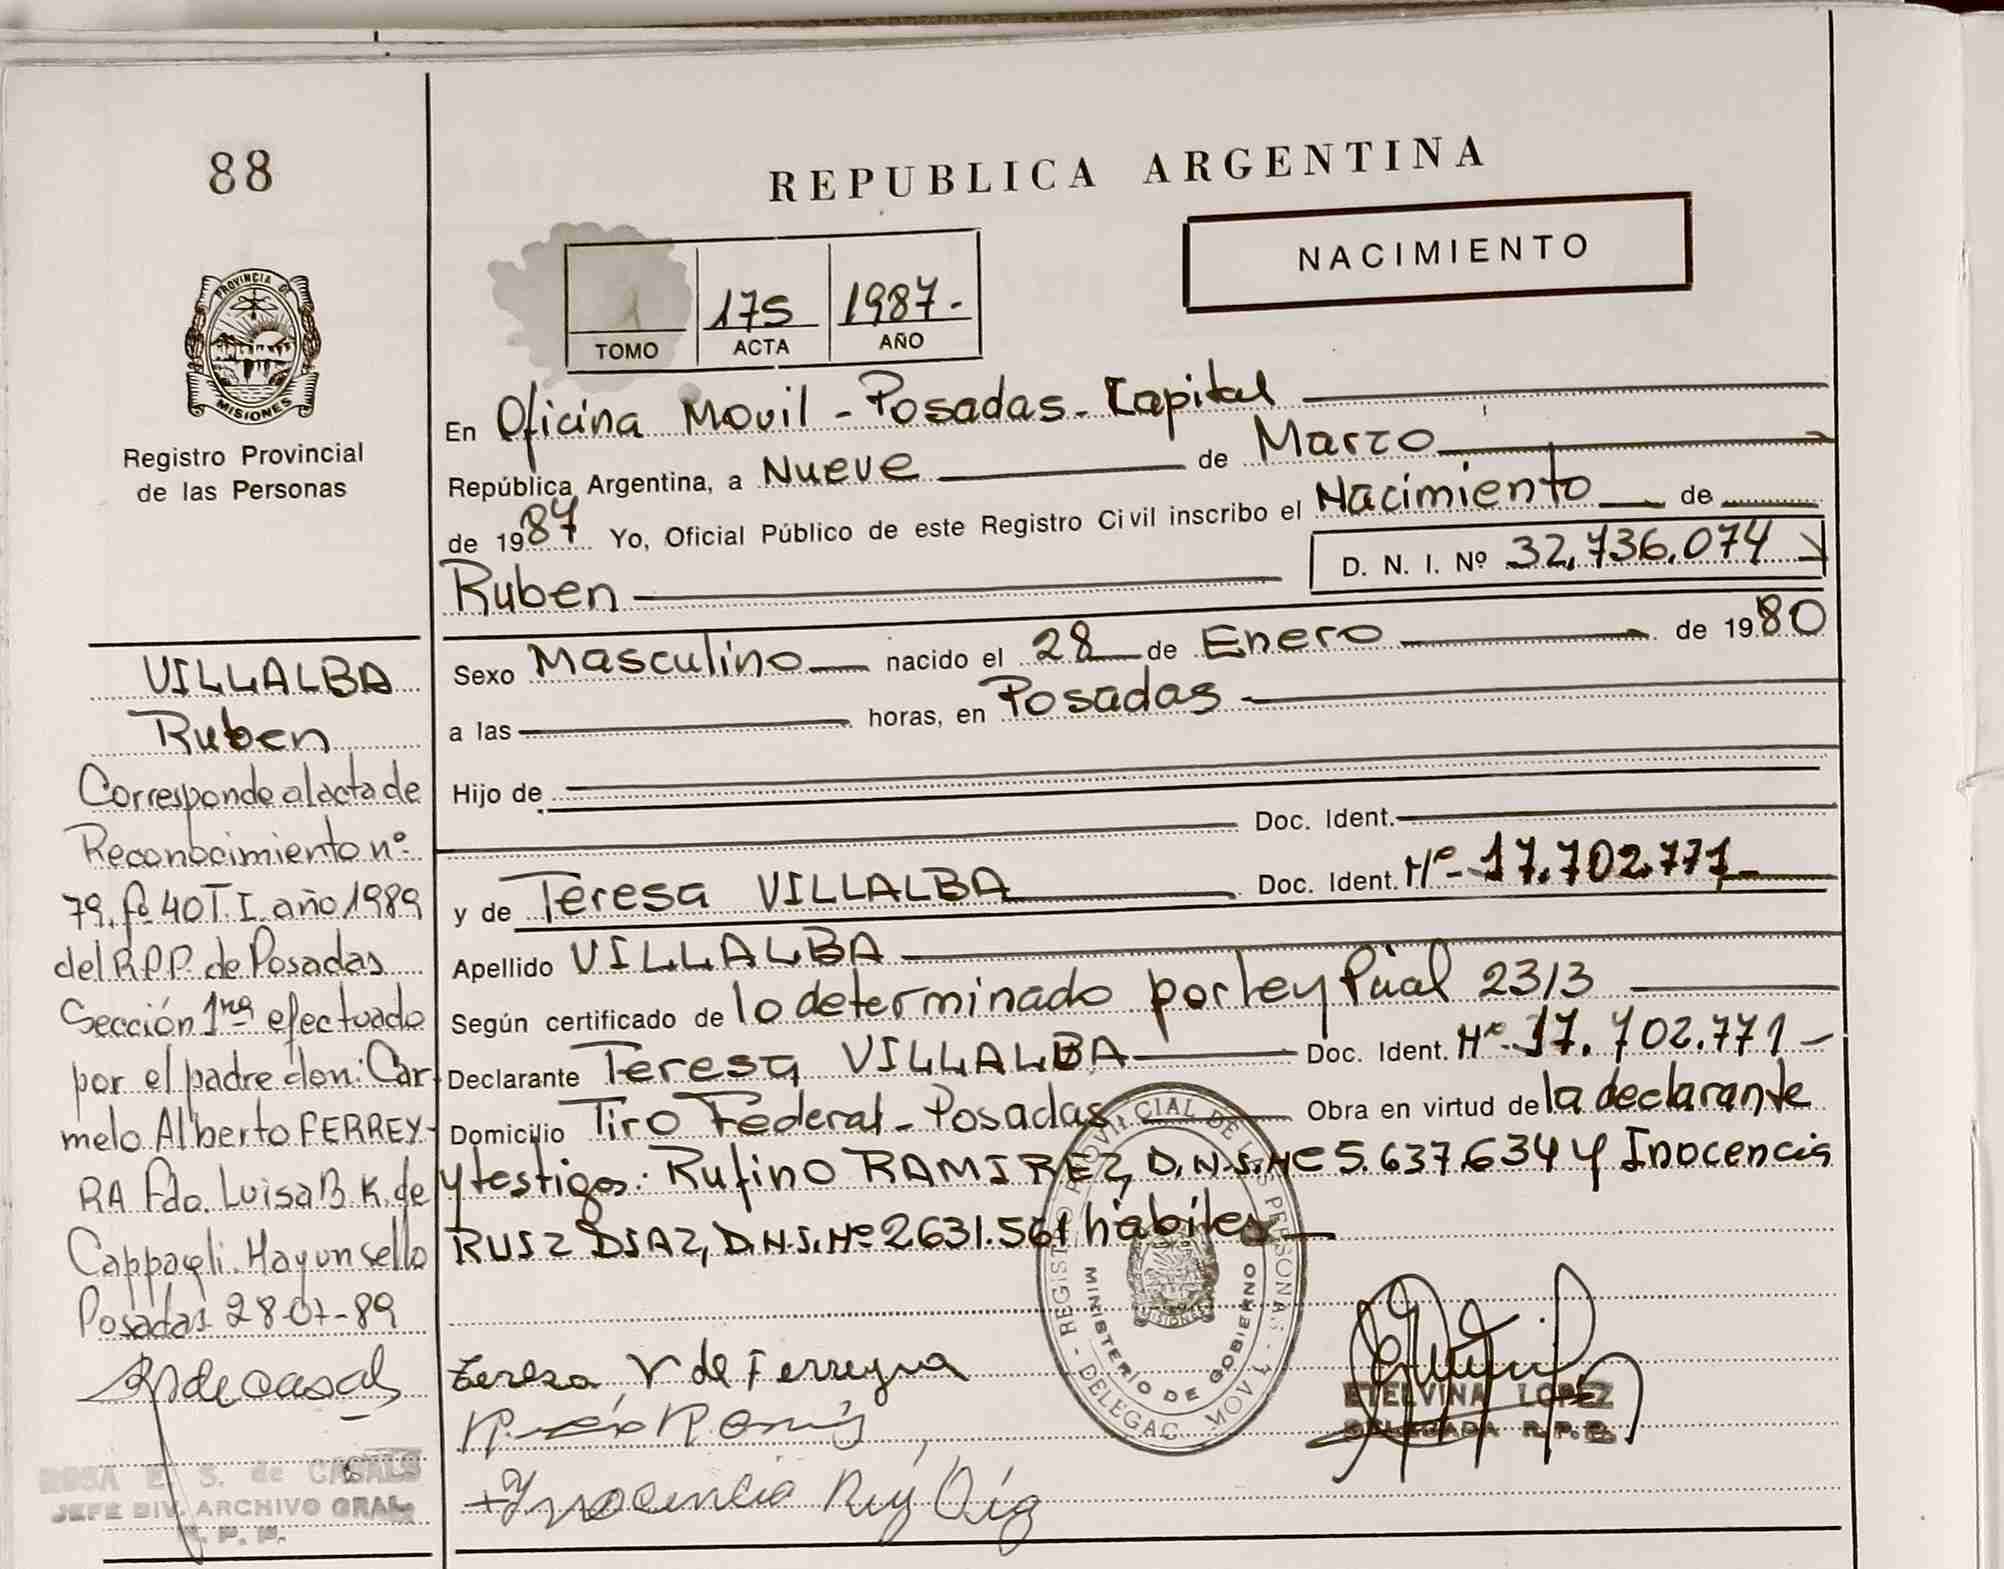 88
REPUBLICA ARGENTINA
NACIMIENTO
1 175 1987.-
TOMO ACTA AÑO
PROVINCIA DE
MISIONES
Registro Provincial
de las Personas
En Oficina Movil - Posadas - Capital
República Argentina, a Nueve de Marzo
de 1987 Yo, Oficial Público de este Registro Civil inscribo el Nacimiento de
Ruben D. N. I. Nº 32.736.074
Sexo Masculino nacido el 28 de Enero de 1980
a las horas, en Posadas
Hijo de
Doc. Ident.
y de Teresa VILLALBA Doc. Ident. Nº 17.702.771
Apellido VILLALBA
Según certificado de lo determinado por Ley Pcial 2313
Declarante Teresa VILLALBA Doc. Ident. Nº 17.702.771
Domicilio Tiro Federal - Posadas Obra en virtud de la declarante
y testigos: Rufino RAMIREZ, D.N.I. Nº 5.637.634 y Inocencia
RUIZ DIAZ, D.N.I. Nº 2631.561 hábiles
Teresa V de Ferreyra
Inocencia Ruy Díaz
REGISTRO PROVINCIAL DE LAS PERSONAS - DELEGAC. MOVIL -
MINISTERIO DE GOBIERNO
MISIONES
ETELVINA LOPEZ
DELEGADA R.P.P.
VILLALBA
Ruben
Corresponde al acta de
Reconocimiento nº
79. fº 40 T.I. año 1989
del R.P.P. de Posadas
Sección 1ra efectuado
por el padre don: Car-
melo Alberto FERREY-
RA Fdo. Luisa B. K. de
Cappagli. Hay un sello
Posadas 28-07-89
ROSA E. S. de CASALS
JEFE DIV. ARCHIVO GRAL.
R. P. P.